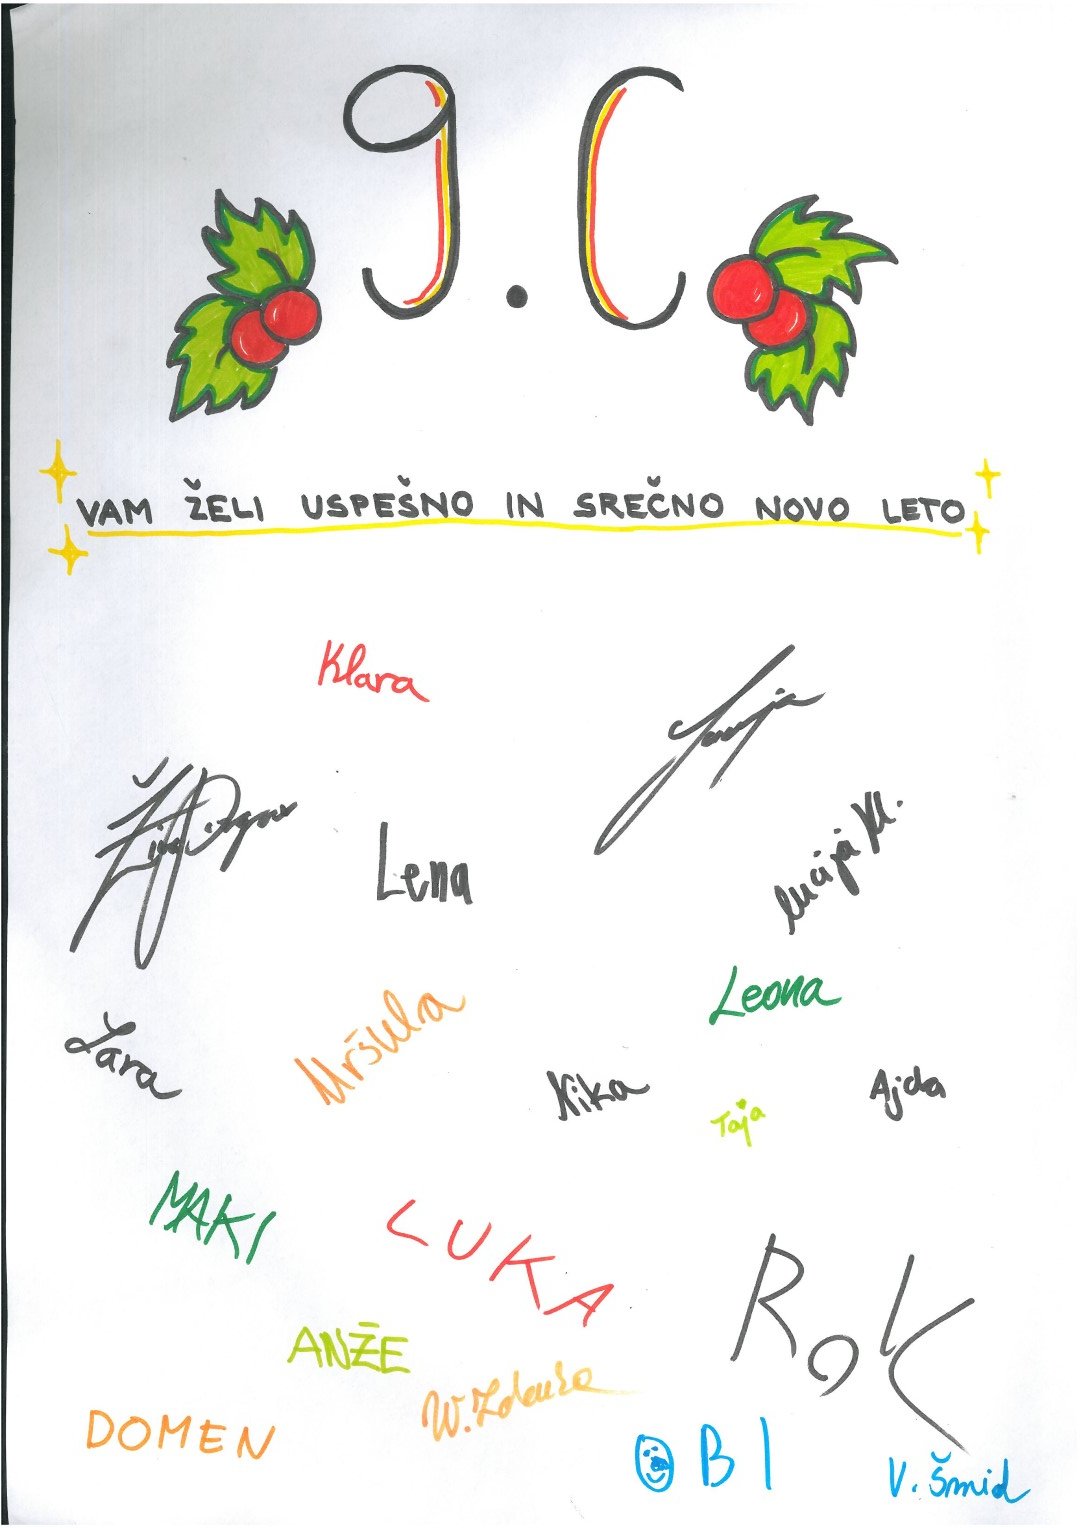 9.C
VAM ŽELI USPEŠNO IN SREČNO NOVO LETO
Klara
Lena
Lucija Kl.
Leona
Uršula
Lara
Nika
Taja
Ajda
MAKI
LUKA
ROK
ANŽE
W. Zdenka
DOMEN
OBI
V. Šmid